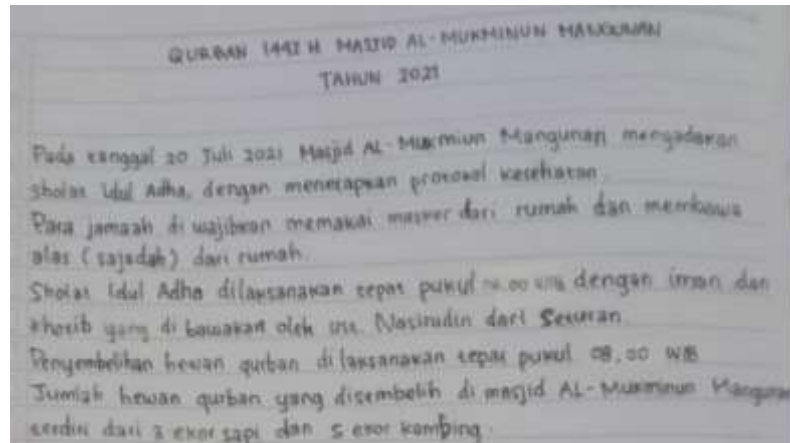 QURBAN 1442 H MASJID AL-MUKMINUN MANGUNAN
TAHUN 2021
Pada tanggal 20 Juli 2021 Masjid AL-Mukmiun Mangunan mengadakan
sholat Idul Adha, dengan menerapkan protokol kesehatan.
Para jamaah di wajibkan memakai masker dari rumah dan membawa
alas (sajadah) dari rumah.
Sholat Idul Adha dilaksanakan tepat pukul WIB dengan iman dan
khotib yang di bawakan oleh ust. Nasirudin dari Seturan
Penyembelihan hewan qurban di laksanakan tepat pukul 08.00 WIB
Jumlah hewan qurban yang disembelih di masjid AL-Mukminun Mangunan
terdiri dari 3 ekor sapi dan 5 ekor kambing.